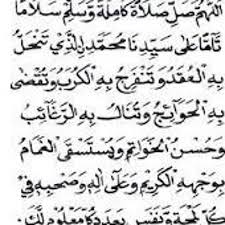 اَللّٰهُمَّ صَلِّ صَلَاةً كَامِلَةً وَسَلِّمْ سَلَامًا
تَامًّا عَلٰى سَيِّدِنَا مُحَمَّدِ نِالَّذِيْ تَنْحَلُّ
بِهِ الْعُقَدُ وَتَنْفَرِجُ بِهِ الْكُرَبُ وَتُقْضٰى
بِهِ الْحَوَائِجُ وَتُنَالُ بِهِ الرَّغَائِبُ
وَحُسْنُ الْخَوَاتِمِ وَيُسْتَسْقَى الْغَمَامُ
بِوَجْهِهِ الْكَرِيْمِ وَعَلٰى اٰلِهِ وَصَحْبِهِ فِيْ
كُلِّ لَمْحَةٍ وَنَفَسٍ بِعَدَدِ كُلِّ مَعْلُوْمٍ لَكَ